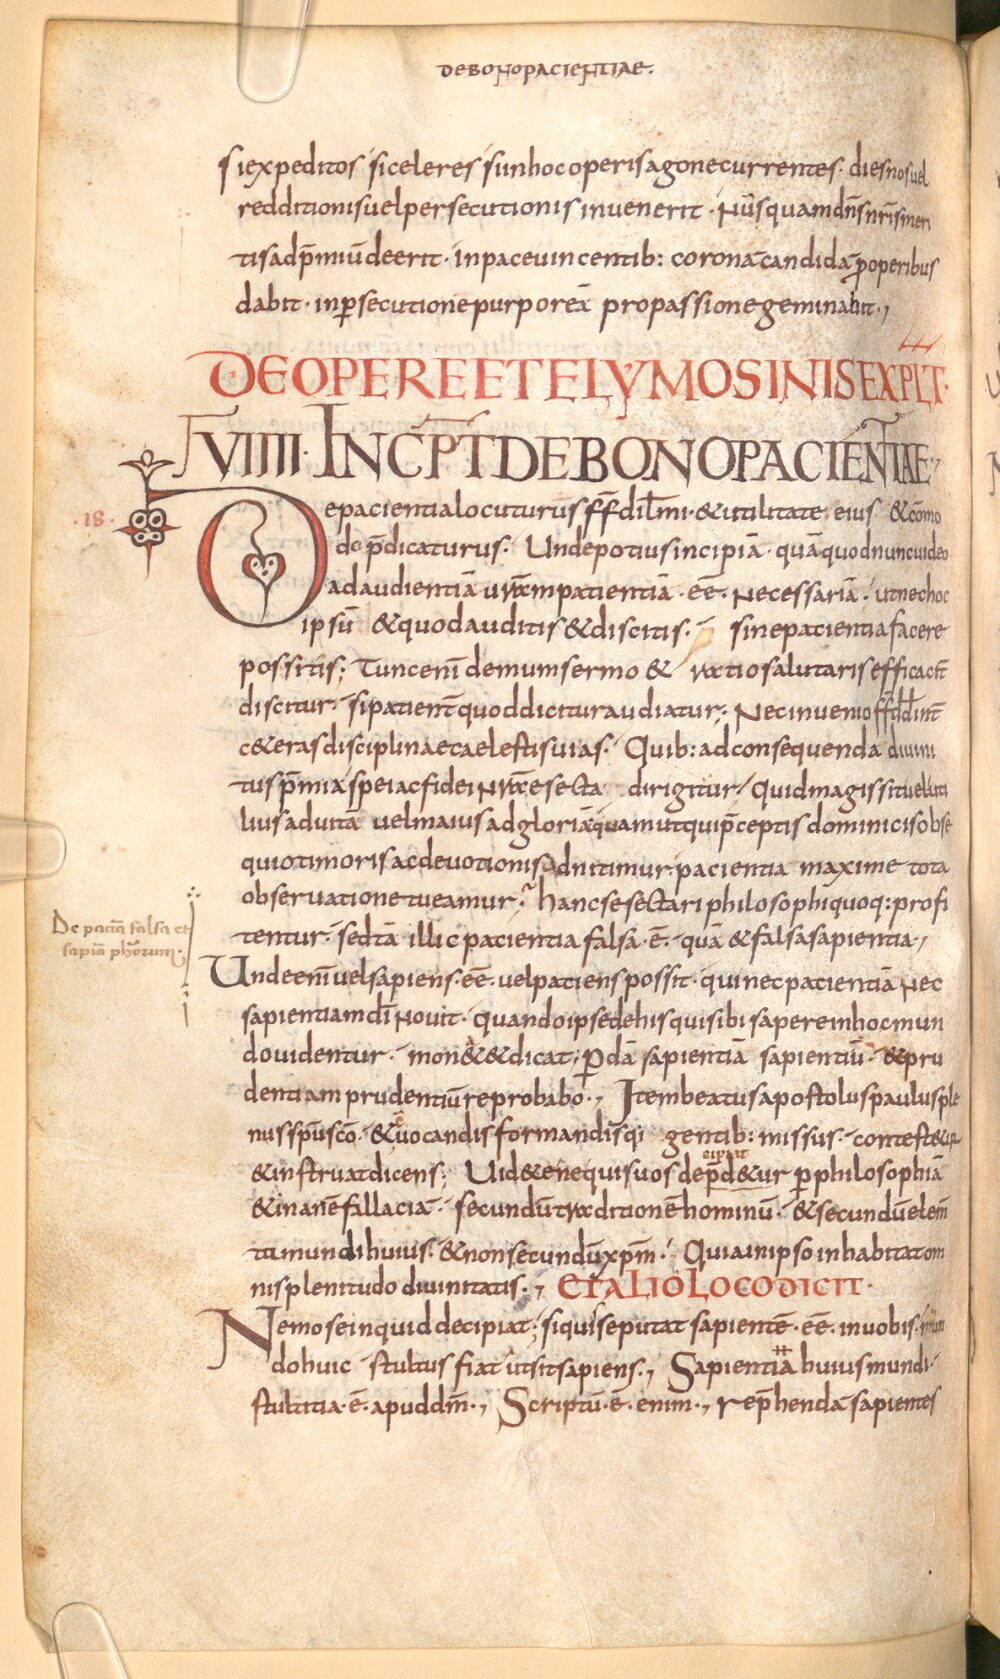 DEBONOPACIENTIAE.
si expeditos si celeres si in hoc operis agone currentes· dies nos uel
redditionis uel persecutionis inuenerit· Nūsquam dn̄s nr̄is meri
tis ad p̄miū deerit· in pace uincentib: coronā candidā p̱ operibus
dabit· in p̱secutione purporeā pro passione geminabit·,
DE OPERE ET ELYMOSINIS EXPLT·
VIIII· INCP̄T DE BONO PACIENTIAE·,
·18· De pacientia locuturus ff̄ dil̄mi· & utilitate eius & cōmo
da p̄dicaturus· Unde potius incipiā· quā quod nunc uideo
ad audientiā ur̄am patientiā· eē· Necessariā· ut nec hoc
ipsū & quod auditis & discitis· sine pacientia facere
possitis; Tunc enī demum sermo & ratio salutaris efficacit̄
discitur· si patient̄ quod dicitur audiatur; Nec inuenio ff̄ d̄d̄ int̄
c&eras disciplinae caelestis uias· Quib: ad consequenda diuini
tus p̄mia spei ac fidei nr̄ae secta dirigitur· Quid magis sit uel uti
lius ad uitā uel maius ad gloriā quam ut qui p̄ceptis dominicis obse
quio timoris ac deuotionis adnitimur· pacientia maxime tota
obseruatione tueamur; hanc se sectari philosophi quoq: profi
tentur· sed tā illic pacientia falsa· ē· quā & falsa sapientia·,
De paciā falsa et
sapiā ph̄orum
Unde enī uel sapiens· eē· uel patiens possit· qui nec pacientiā Nec
sapientiam dī Nouit· quando ipse de his qui sibi sapere in hoc mun
do uidentur· mon& & dicat; P̱dā sapientiā sapientiū· & pru
dentiam prudentiū reprobabo·, Item beatus apostolus paulus ple
nus sp̄u sc̄o· & uocandis formandisq; gentib: missus· contest&ur
& instruat dicens; Uid&e ne quis uos dep̄d&ur p̱ philosophiā
& inanē fallaciā· secundū traditionē hominū· & secundū elem̄
ta mundi huius· & non secundū xp̄m· Quia in ipso inhabitat om
nis plenitudo diuinitatis·, ET ALIO LOCO DICIT·
Nemo se inquid decipiat; si quis se putat sapientē· eē· in uobis· mun
do huic stultus fiat ut sit sapiens·, Sapientiā huius mundi·
stultitia· ē· apud dm̄·, Scriptū· ē· enim·, rep̄hendā sapientes